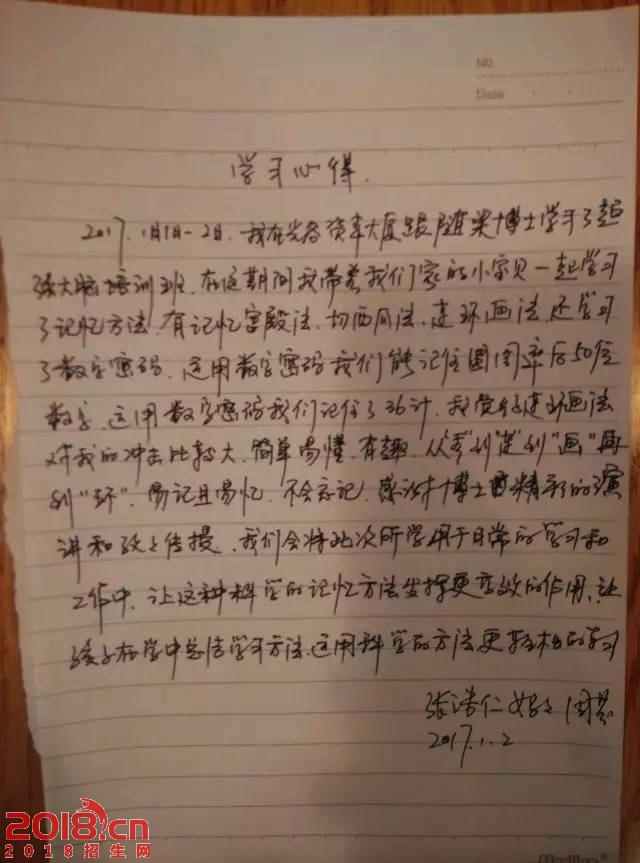 No
Date
学习心得.
2017.1月1日-2日.我在资本大厦跟随梁博士学习了超
强大脑培训班.在这期间我带着我们家的小宝贝一起学习
了记忆方法.有记忆宫殿法.切西瓜法.连环画法.还学习
了数字密码.运用数字密码我们能记住圆周率后50位
数字.运用数字密码我们记住了36计.我觉得连环画法
对我的冲击比较大.简单易懂.有趣.从"到"连"到"画"再
到"环".易记且易忆.不会忘记.感谢博士精彩的演
讲和传授.我们会将此次所学用于日常的学习和
工作中.让这种科学的记忆方法发挥更高效的作用.让
孩子在学中总结学习方法.运用科学的方法更轻松的学习
张浩仁妈妈 周
2017.1.2
2018.cn
2018招生网